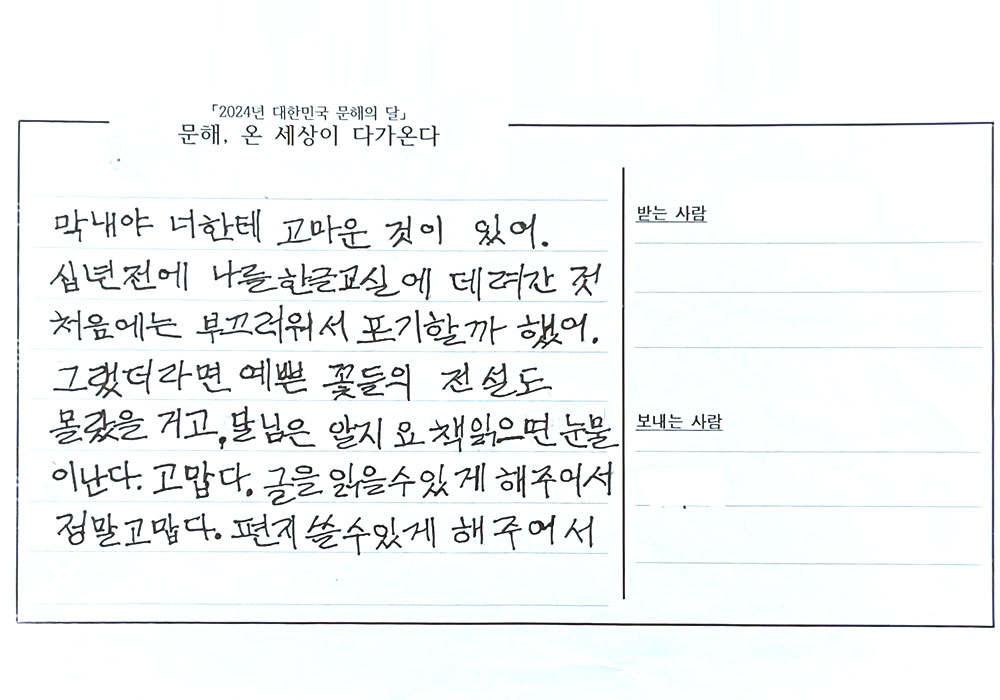 「2024년 대한민국 문해의 달」
문해, 온 세상이 다가온다
막내야 너한테 고마운 것이 있어.
십년전에 나를 한글교실에 데려간 것
처음에는 부끄러워서 포기할까 했어.
그랬더라면 예쁜 꽃들의 전설도
몰랐을 거고, 달님은 알지요 책읽으면 눈물
이난다. 고맙다. 글을 읽을수있게 해주어서
정말고맙다. 편지 쓸수있게 해주어서
받는 사람
보내는 사람